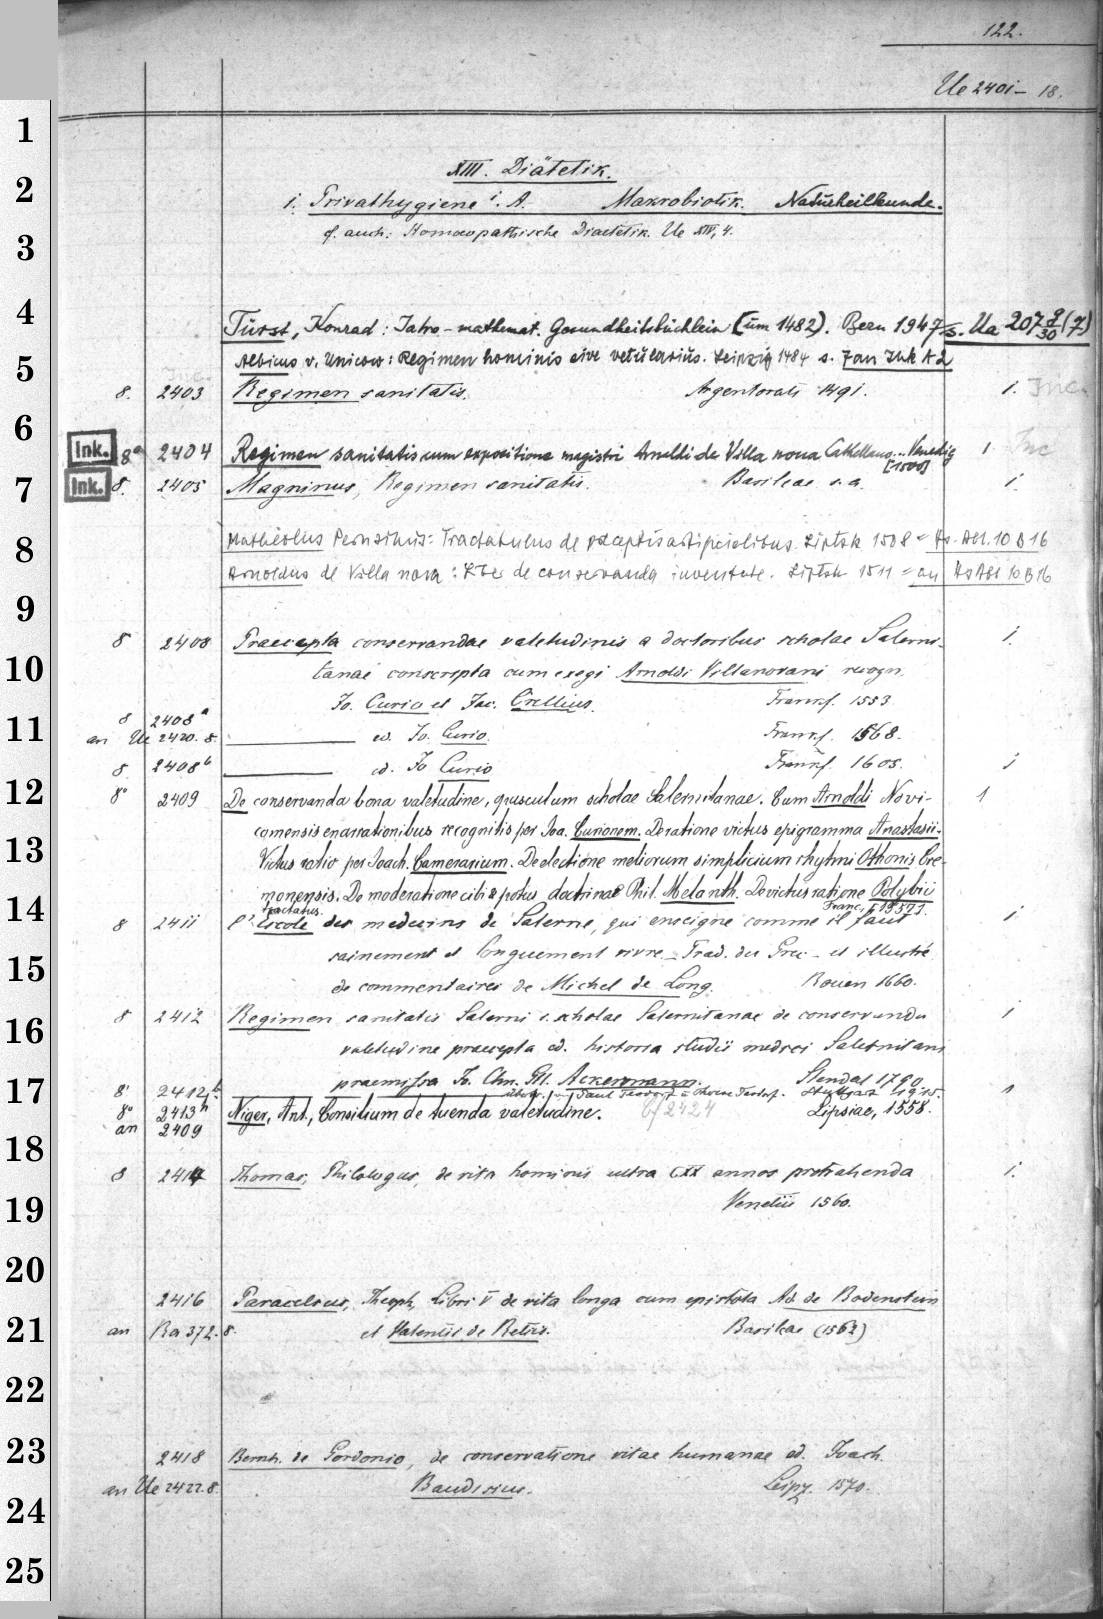 122.
Ue 2401– 18.
XIII. Diätetik.
1. Privathygiene i. A. Makrobiotik. Naturheilkunde.
cf. auch: Homoeopathische Diaetetik. Ue XIV, 4.
1
2
3
4
5
6
7
8
9
10
11
12
13
14
15
16
17
18
19
20
21
22
23
24
25
Türst, Konrad: Iatro-mathemat. Gesundheitsbüchlein (um 1482). Bern 1947 s. Ua 207 8/30 (7)
Albicus v. Unicow: Regimen hominis sive vetularius. Leipzig 1484 s. Jan Ink A 2
8. 2403 Regimen sanitatis. Argentorati 1491. 1. Inc.
Ink. 8° 2404 Regimen sanitatis cum expositione magistri Arnoldi de Villa nova Cathellano... Venedig [1500] 1 Inc
Ink. 8. 2405 Magninus, Regimen sanitatis. Basileae s. a. 1.
Matheolus Perusinus: Tractatulus de praeceptis artificialibus. Liptzk 1508 = As. Abt. 10 B 16
Arnoldus de Villa nova: Liber de conservanda iuventute. Liptzk 1511 = an As Abt 10 B 16
8 2408 Praecepta conservandae valetudinis a doctoribus scholae Salerni-
tanae conscripta cum exegi Arnoldi Villanovani recogn.
Jo. Curio et Jac. Crellius. Francf. 1553
8 2408a
an Ue 2420. 8. ed. Jo. Curio. Francf. 1568.
8. 2408b ed. Jo Curio Francf. 1605. 1
8° 2409 De conservanda bona valetudine, opusculum scholae Salernitanae. Cum Arnoldi Novi- 1
comensis enarrationibus recognitis per Joa. Curionem. De ratione victus epigramma Anastasii.
Victus ratio per Joach. Camerarium. De electione meliorum simplicium rhythmi Othonis Cre-
monensis. De moderatione cibi & potus doctrinae Phil. Melanth. De victus ratione Polybii
Tractatus. Franc.
8 2411 l'Escole des medecins de Salerne, qui enseigne comme il faut 1
sainement et longuement vivre – Trad. du Grec – et illustré
de commentaires de Michel de Long. Rouen 1660.
8 2412 Regimen sanitatis Salerni s. scholae Salernitanae de conservanda 1
valetudine praecepta ed. historia studii medici Salernitani
praemissa Jo. Chn. Gtl. Ackermann. Stendal 1790
8° 2412b. Stuttgart 1915. 1
8° 2413h Niger, Ant., Consilium de tuenda valetudine. cf 2424 Lipsiae, 1558.
an 2409
8 2414 Thomas, Philologus, de vita hominis ultra CXX annos protrahenda 1.
Venetiis 1560.
2416 Paracelsus, Theoph., Libri V de vita longa cum epistola Ad. de Bodenstein
an Ba 372. 8. et Valentii de Retiis. Basileae (1562)
2418 Bernh. de Gordonio, de conservatione vitae humanae ed. Joach.
an Ue 2422. 8. Baudisius. Leipz. 1570.